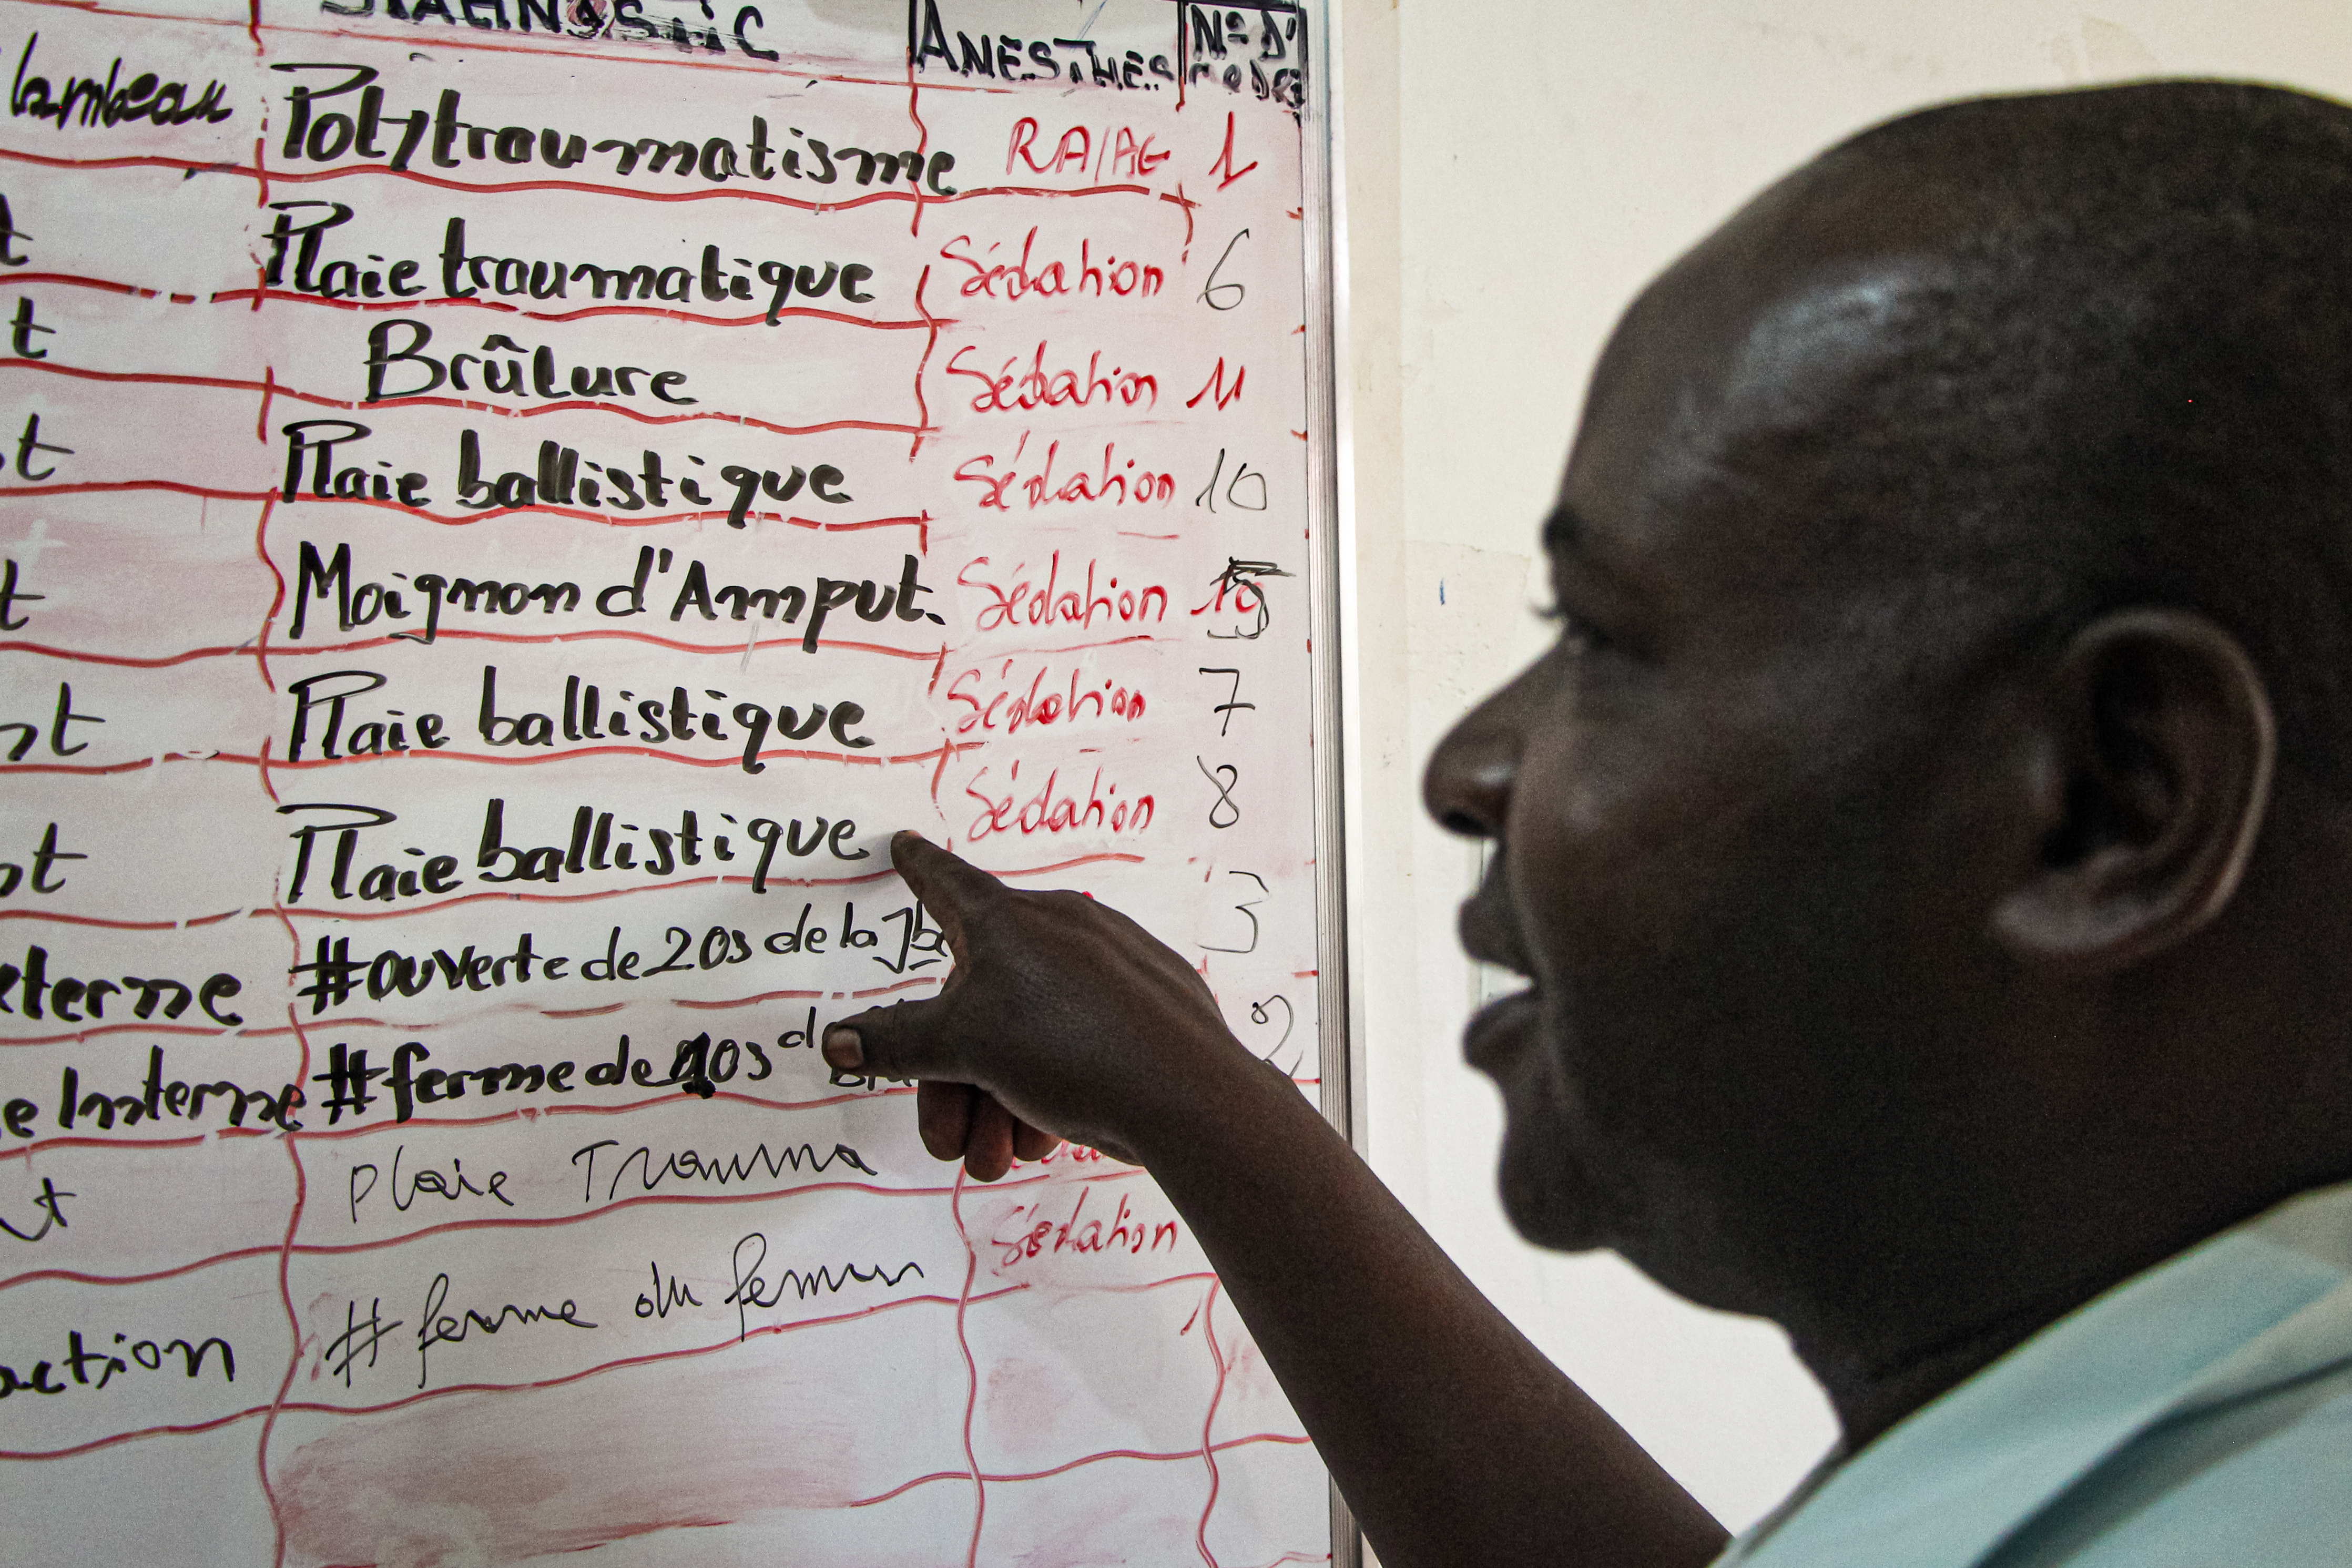 DIAGNOSTIC ANESTHES N° D'
lambeau Polytraumatisme RA/AG 1
t Plaie traumatique Sédation 6
t Brûlure Sédation 11
t Plaie ballistique Sédation 10
t Moignon d'Amput. Sédation
nt Plaie ballistique Sédation 7
t Plaie ballistique Sédation 8
terne #ouverte de 20s de la Jbe 3
e Interne #ferme de 10s d 2
t Plaie Trauma
action #ferme du femur Sédation